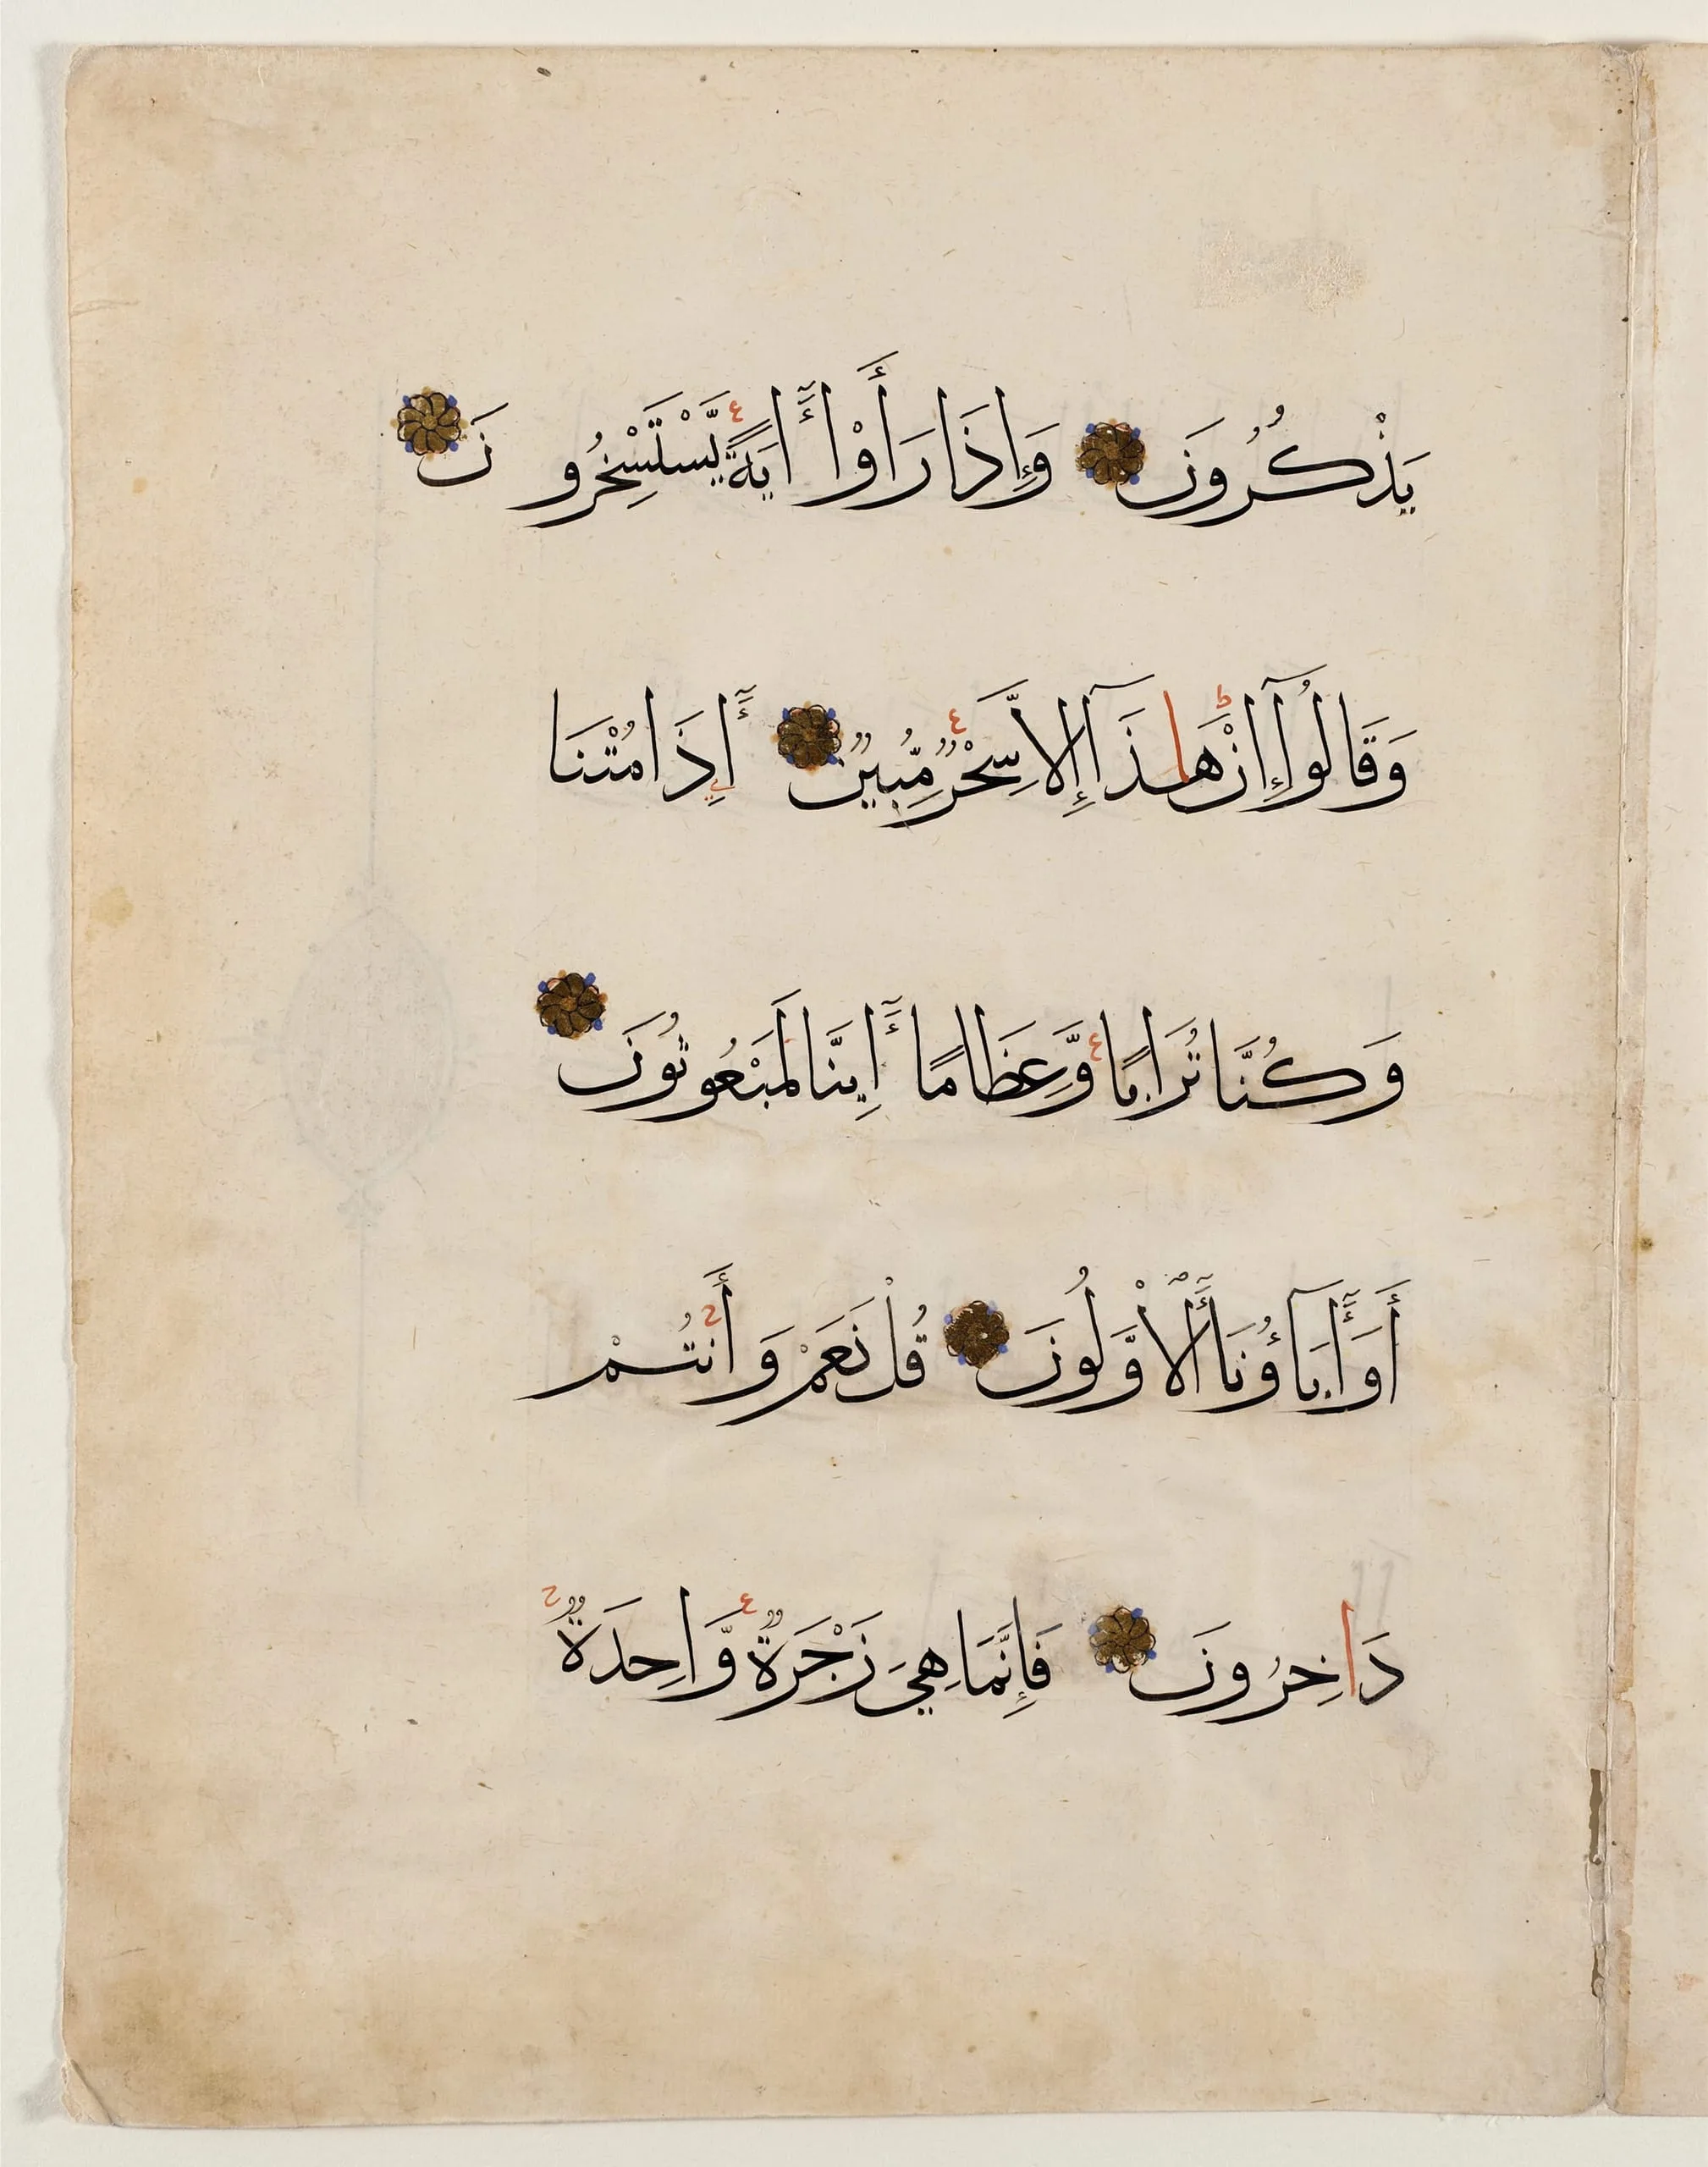 يَذْكُرُونَ وَإِذَا رَأَوْا أَايَةً يَّسْتَسْخِرُونَ
وَقَالُوا إِنْ هَاذَآ إِلَّا سِحْرٌ مُّبِينٌ أَإِذَا مُتْنَا
وَكُنَّا تُرَابًا وَّعِظَامًا أَإِنَّا لَمَبْعُوثُونَ
أَوَأَابَآؤُنَا ألْأَوَّلُونَ قُلْ نَعَمْ وَأَنتُمْ
دَاخِرُونَ فَإِنَّمَا هِيَ زَجْرَةٌ وَّاحِدَةٌ